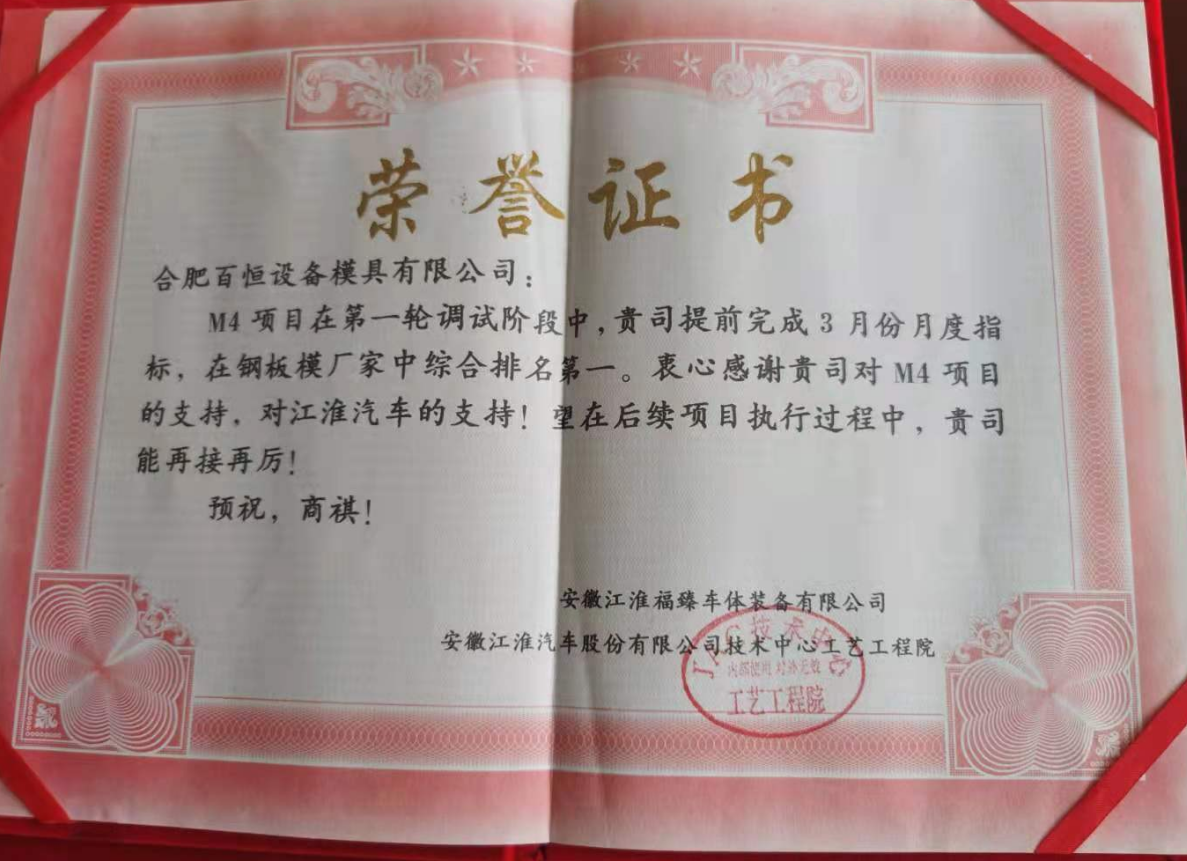 荣誉证书
合肥百恒设备模具有限公司：
M4 项目在第一轮调试阶段中，贵司提前完成 3 月份月度指
标，在钢板模厂家中综合排名第一。衷心感谢贵司对 M4 项目
的支持，对江淮汽车的支持！望在后续项目执行过程中，贵司
能再接再厉！
预祝，商祺！
安徽江淮福臻车体装备有限公司
安徽江淮汽车股份有限公司技术中心工艺工程院
JAC技术中心
内部使用 对外无效
工艺工程院